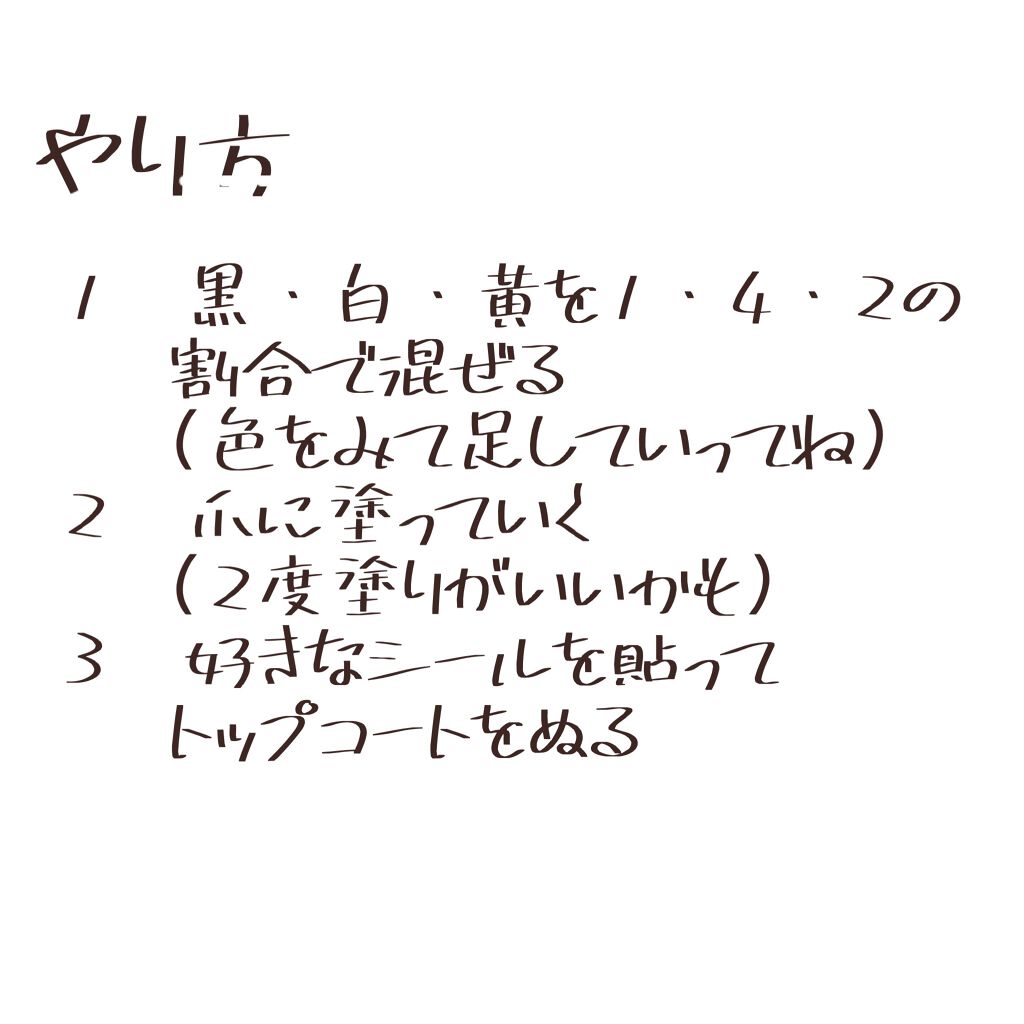 やり方
1 黒・白・黄を1・4・2の
割合で混ぜる
(色をみて足していってね)
2 爪に塗っていく
(2度塗りがいいかも)
3 好きなシールを貼って
トップコートをぬる